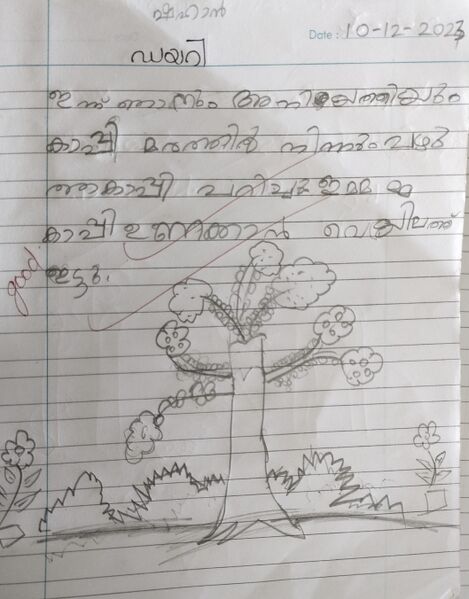 മഹറാൻ
Date : 10-12-2023
ഡയറി
ഇന്ന് ഞാനും അനിയത്തിയും
കാപ്പി മരത്തിൽ നിന്നും പഴുത്ത
കാപ്പി പറിച്ചു ഉമ്മ
കാപ്പി ഉണക്കാൻ വെയിലത്ത്
ഇട്ടു.
good